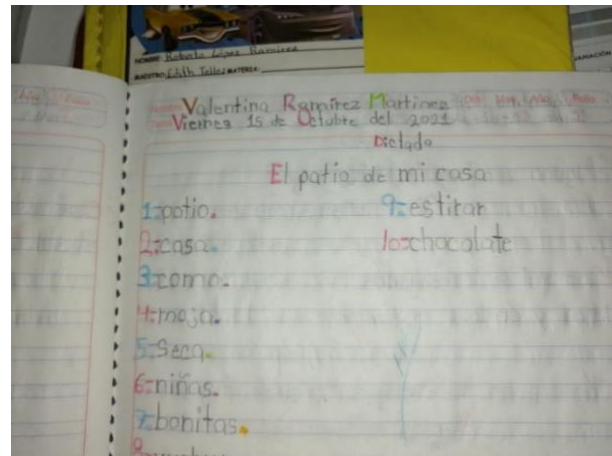 NOMBRE: Roberto López Ramírez
MAESTRO: Edith Tellez MATERIA:
Valentina Ramírez Martínez
Viernes 15 de Octubre del 2021
Dictado
El patio de mi casa
1=patio.
2=casa.
3=como.
4=moja.
5=Seca.
6=niñas.
7=bonitas.
8
9=estirar
10=chocolate